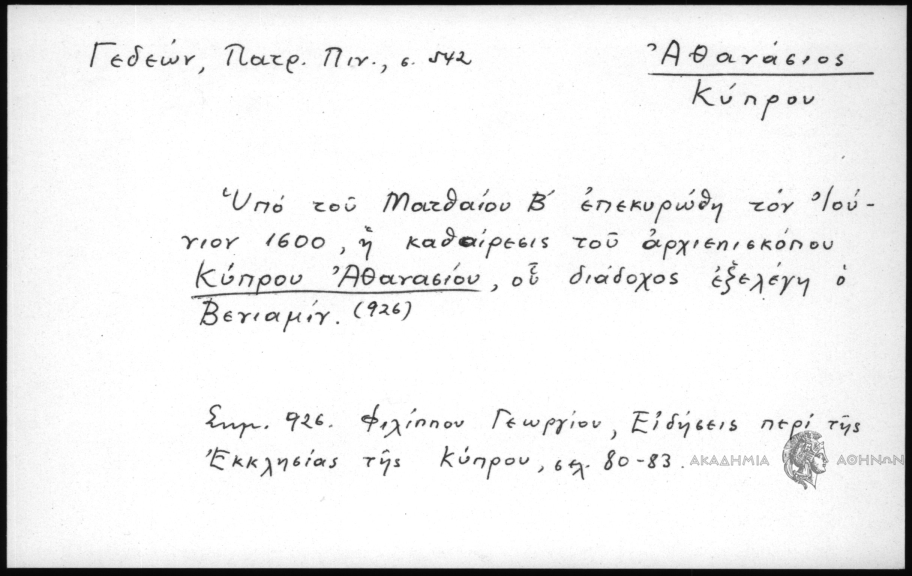 Γεδεών, Πατρ. Πιν., σ. 542
Ἀθανάσιος
Κύπρου
Ὑπό τοῦ Ματθαίου Β´ ἐπεκυρώθη τόν Ἰού-
νιον 1600, ἡ καθαίρεσις τοῦ ἀρχιεπισκόπου
Κύπρου Ἀθανασίου, οὗ διάδοχος ἐξελέγη ὁ
Βενιαμίν. (926)
Σημ. 926. Φιλίππου Γεωργίου, Εἰδήσεις περί τῆς
Ἐκκλησίας τῆς Κύπρου, σελ. 80-83.
ΑΚΑΔΗΜΙΑ ΑΘΗΝΩΝ